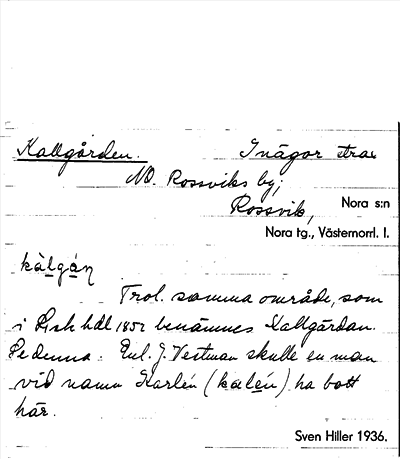 Kallgården. Inägor strax
NO. Rossviks by;
Rossvik, Nora s:n
Nora tg., Västernorrl. l.
kàlgán
Trol. samma område, som
i hdl 1852 benämnes Kallgårdan.
Se denna. Enl. J. Vestman skulle en man
vid namn Karlén (kalén) ha bott
här.
Sven Hiller 1936.